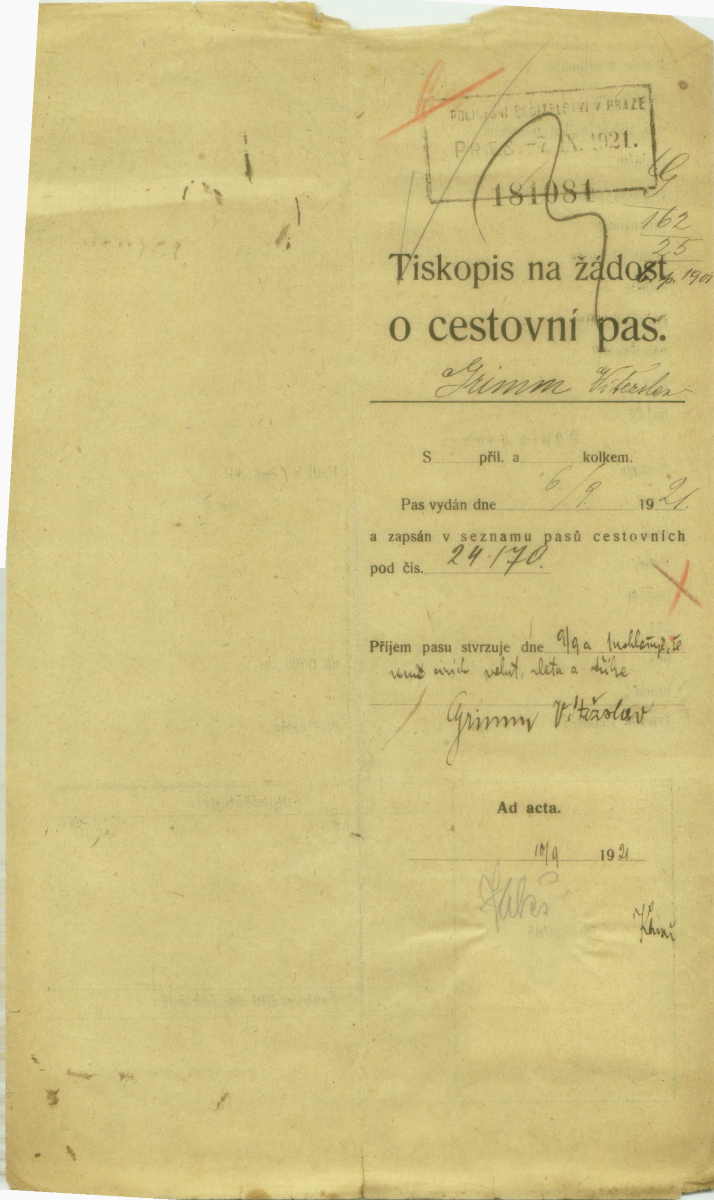 POLICEJNÍ ŘEDITELSTVÍ V PRAZE
PRES. -7. IX. 1921.
181081
162
25
1901
Tiskopis na žádost
o cestovní pas.
Grimm Vítězslav
S příl. a kolkem.
Pas vydán dne 6/9 1921.
a zapsán v seznamu pasů cestovních
pod čís. 24.170.
Příjem pasu stvrzuje dne 9/9 a
a
Grimm Vítězslav
Ad acta.
10/9 1921